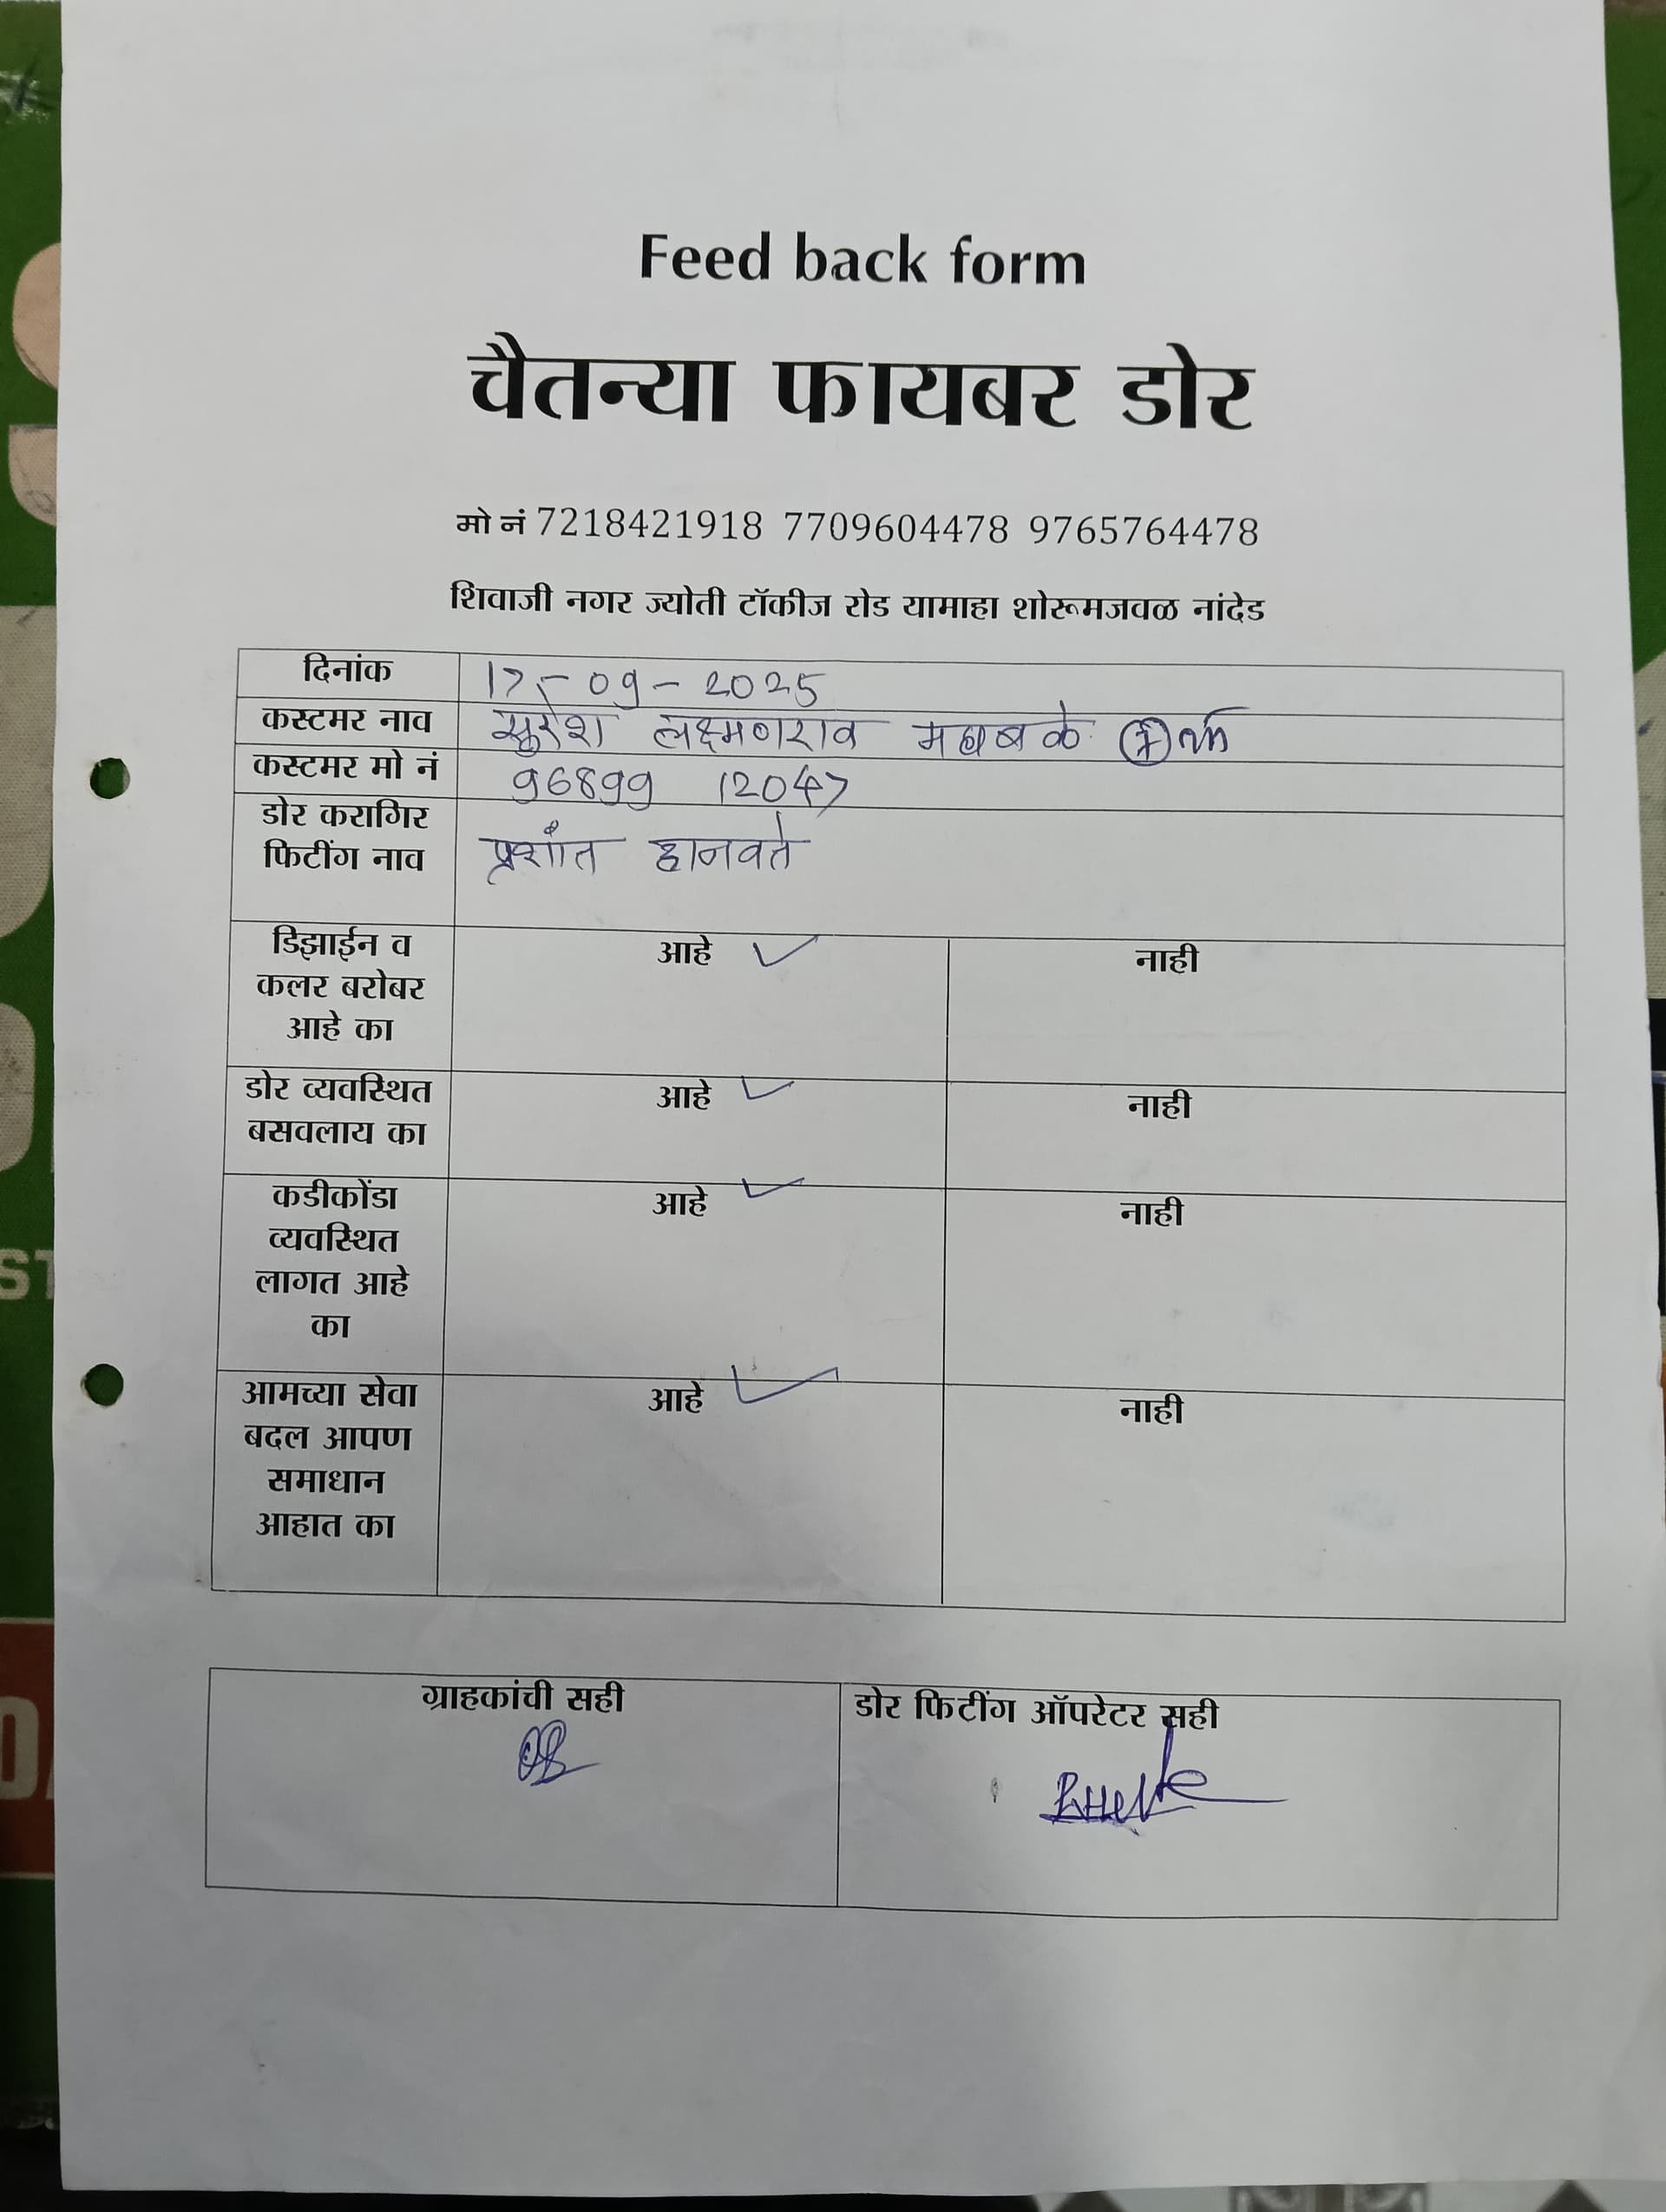 Feed back form
चैतन्या फायबर डोर
मो नं 7218421918 7709604478 9765764478
शिवाजी नगर ज्योती टॉकीज रोड यामाहा शोरूमजवळ नांदेड
दिनांक 17-09-2025
कस्टमर नाव सुरेश लक्ष्मणराव
कस्टमर मो नं 96899 12047
डोर करागिर
फिटींग नाव प्रशांत हानवते
डिझाईन व
कलर बरोबर
आहे का
आहे ✓ नाही
डोर व्यवस्थित
बसवलाय का
आहे ✓ नाही
कडीकोंडा
व्यवस्थित
लागत आहे
का
आहे ✓ नाही
आमच्या सेवा
बदल आपण
समाधान
आहात का
आहे ✓ नाही
ग्राहकांची सही
डोर फिटींग ऑपरेटर सही